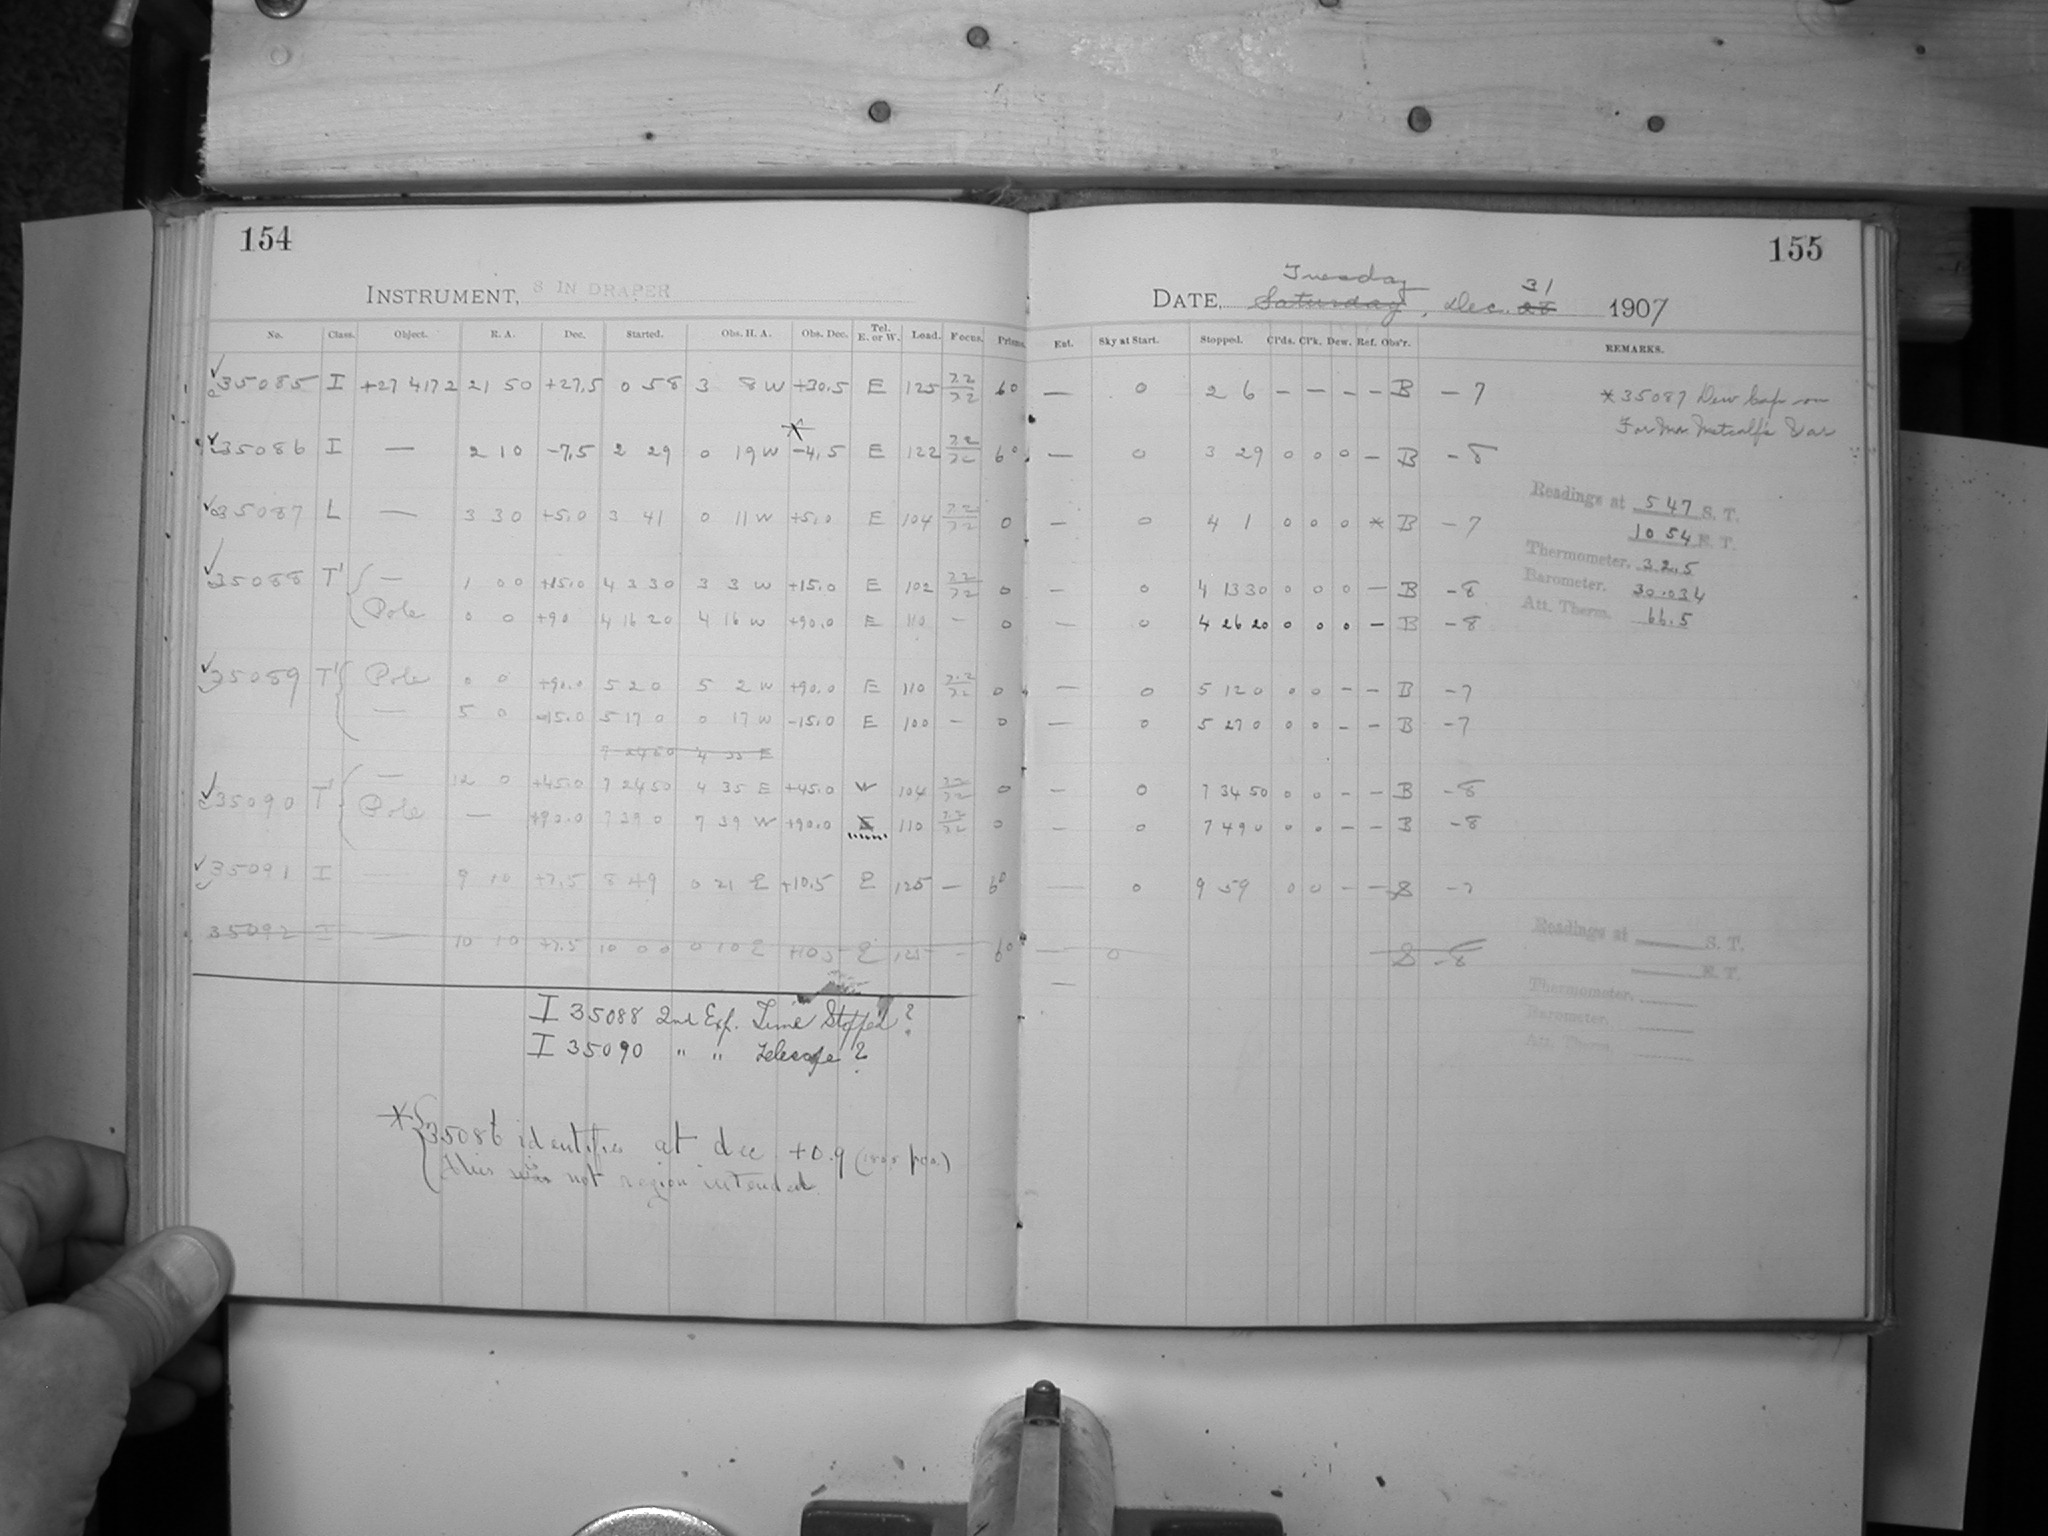 154
INSTRUMENT, 8 IN DRAPER
No. Class. Object. R. A. Dec. Started. Obs. H. A. Obs. Dec. Tel. E. or W. Load. Focus. Prisms.
35085 I +27 4172 21 50 +27.5 0 58 3 8 W +30.5 E 125 60
35086 I — 2 10 -7.5 2 29 0 19 W -4.5 E 122 60
35087 L — 3 30 +5.0 3 41 0 11 W +5.0 E 104 0
35088 T' — 1 00 +15.0 4 3 30 3 3 W +15.0 E 102 0
Pole 0 0 +90 4 16 20 4 16 W +90.0 E 110 — 0
35089 T' Pole 0 0 +90.0 5 2 0 5 2 W +90.0 E 110 0
— 5 0 -15.0 5 17 0 0 17 W -15.0 E 100 — 0
7 24 50 4 35 E
35090 T' — 12 0 +45.0 7 24 50 4 35 E +45.0 W 104 0
Pole — +90.0 7 39 0 7 39 W +90.0 E 110 0
35091 I 9 10 +7.5 8 49 0 21 E +10.5 E 125 — 60
35092 I — 10 10 +7.5 10 0 0 0 10 E E 125 — 60
I 35088 2nd Exp. Time Stopped?
I 35090 " " Telescope?
* 35086 identifies at dec +0.9
this was not region intended.
155
Tuesday 31
DATE, Saturday, Dec. 28 1907
Ent. Sky at Start. Stopped. Cl'ds. Cl'k. Dew. Ref. Obs'r. REMARKS.
— 0 2 6 — — — — B -7 *35087 Dew Cap on
For Mr. Metcalf's Var
— 0 3 29 0 0 0 — B -8
— 0 4 1 0 0 0 * B -7
— 0 4 13 30 0 0 0 — B -8
— 0 4 26 20 0 0 0 — B -8
— 0 5 12 0 0 0 — — B -7
— 0 5 27 0 0 0 — — B -7
— 0 7 34 50 0 0 — — B -8
— 0 7 49 0 0 0 — — B -8
— 0 9 59 0 0 — — S -7
— 0 S -8
—
Readings at 5 47 S. T.
10 54 E. T.
Thermometer. 32.5
Barometer. 30.034
Att. Therm. 66.5
Readings at S. T.
E. T.
Thermometer.
Barometer.
Att. Therm.